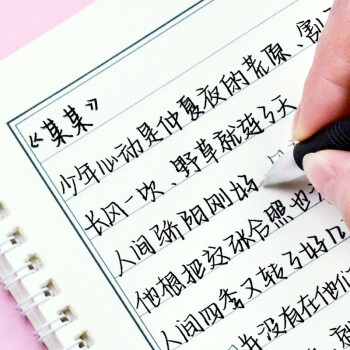 《某某》
少年心动是仲夏夜的荒原、割
长风一吹、野草就连了天
人间骄阳刚好
他想把这张合照也
人间四季又转了好几
没有在他们